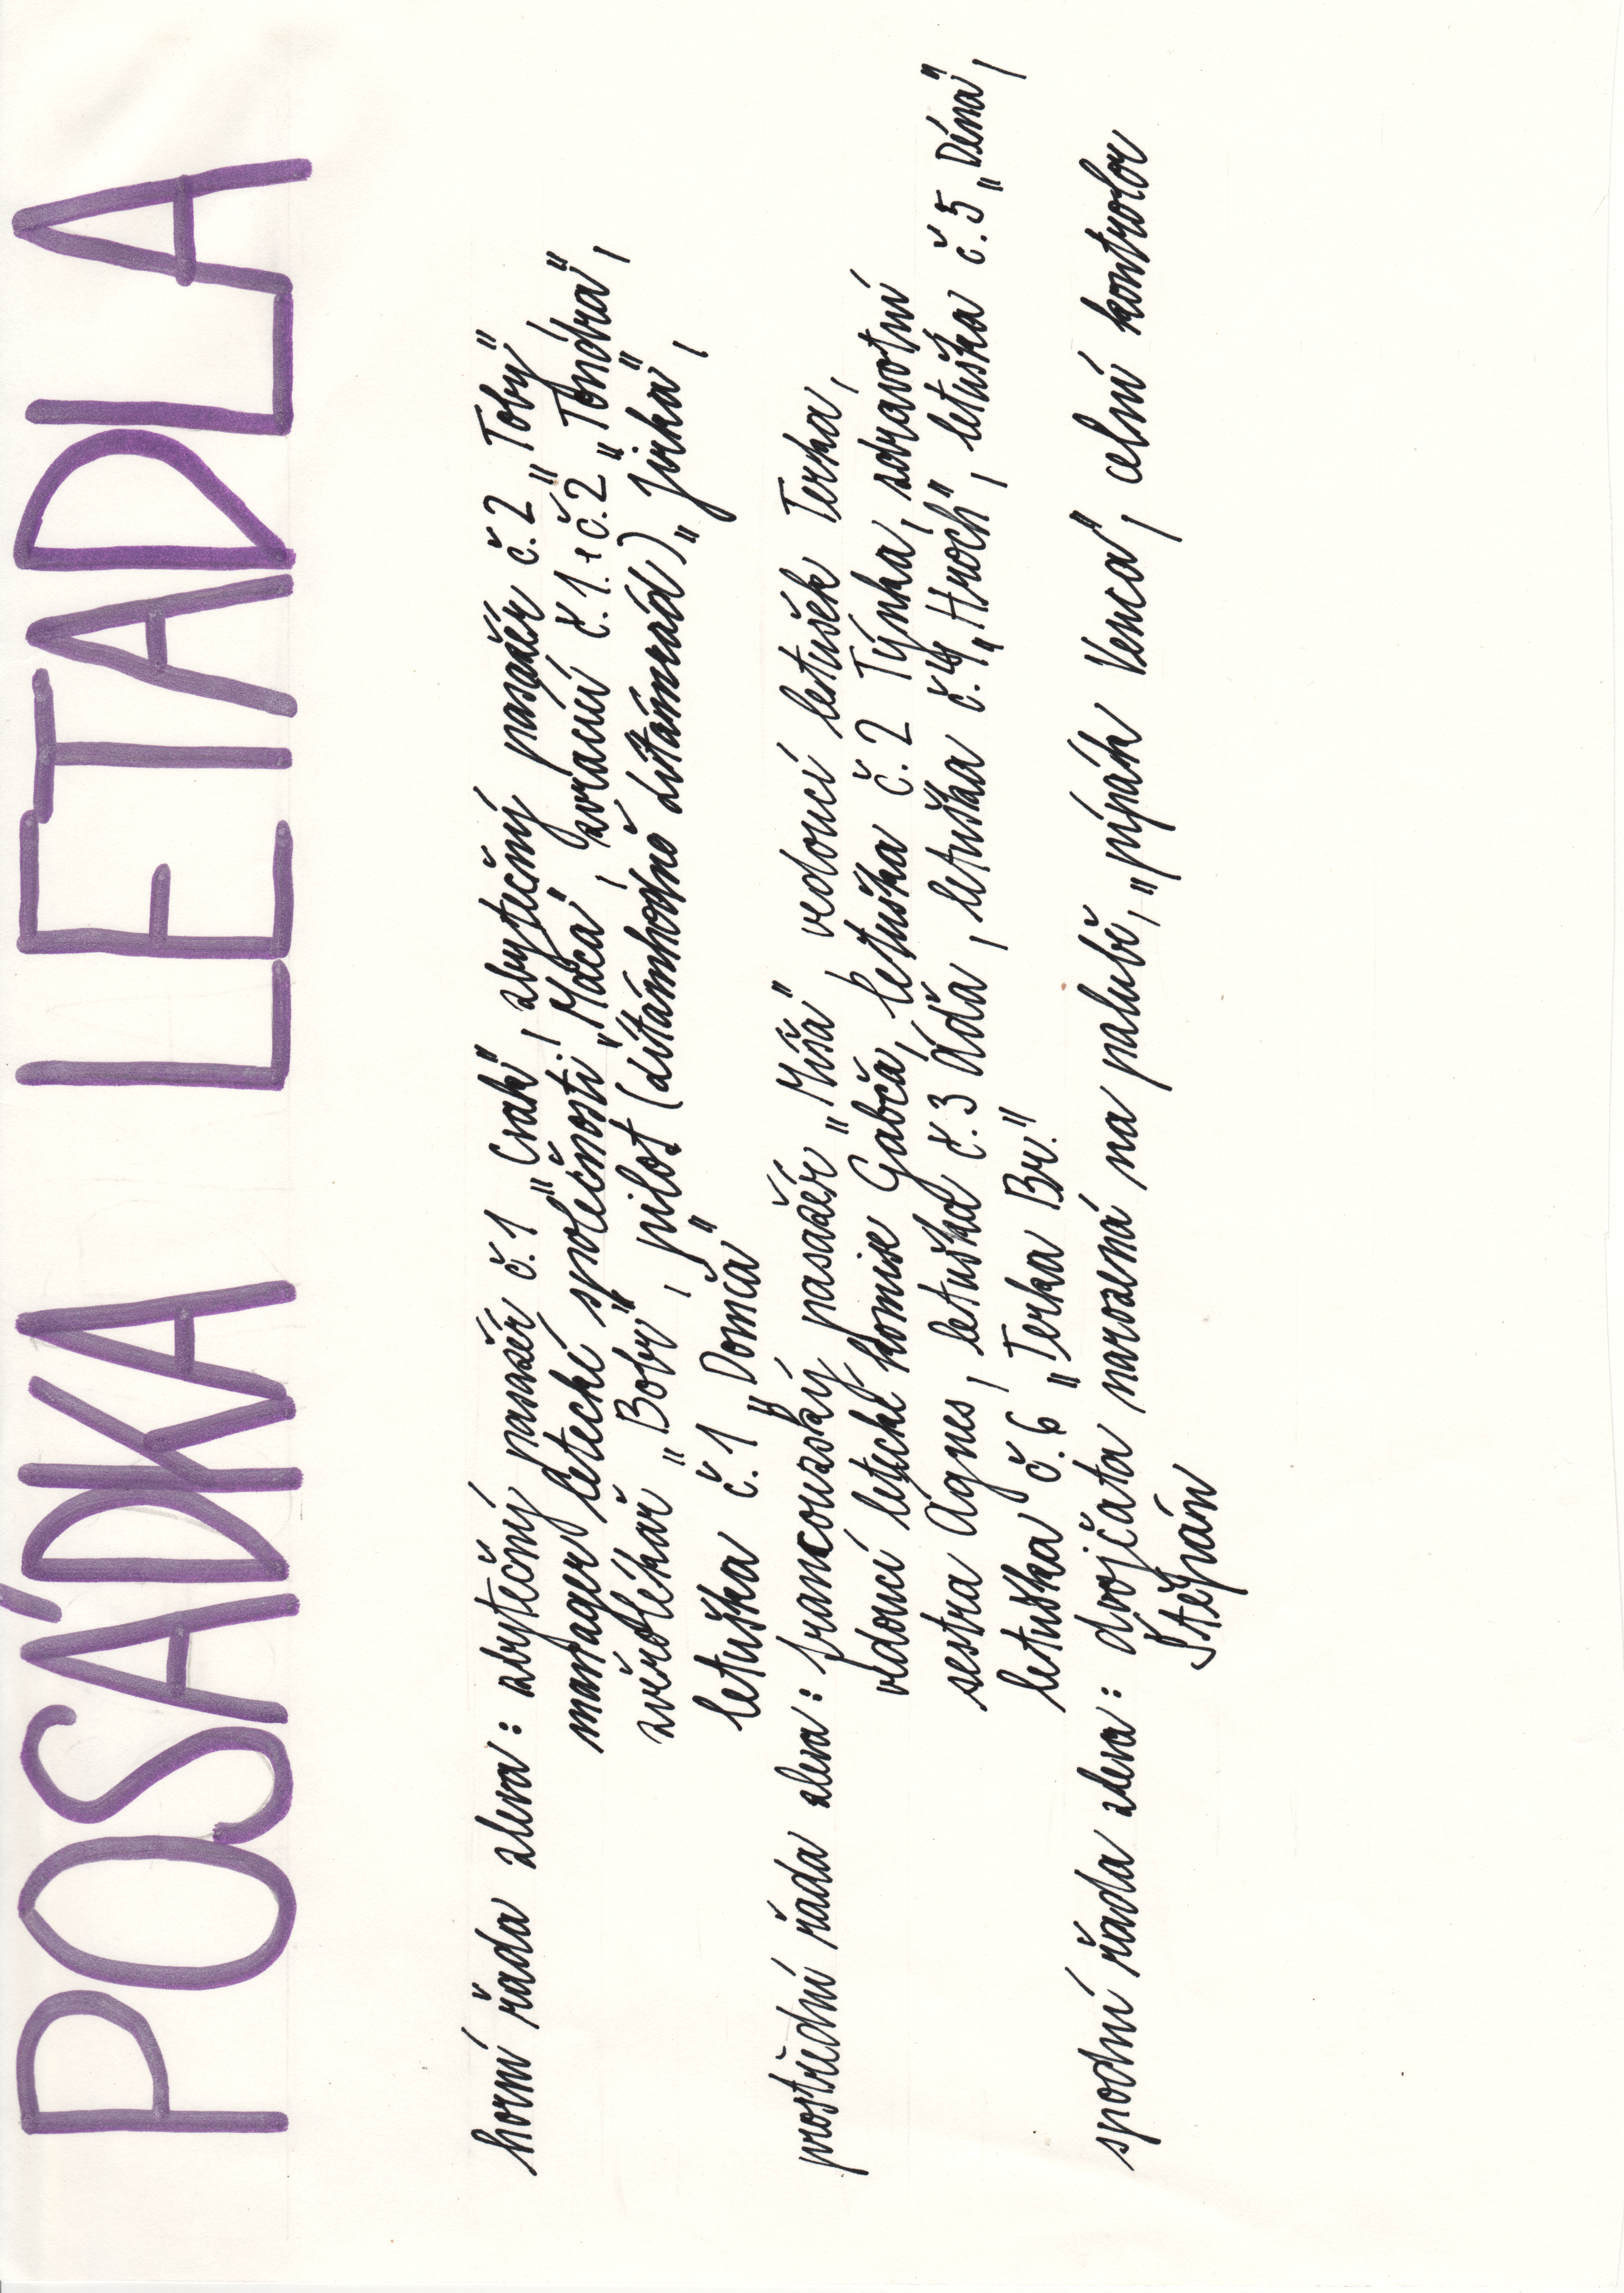 POSÁDKA LETADLA
horní řada zleva: zbytečný pasažér č.1 „Cvak", zbytečný pasažér č.2 „Toby"
manager letecké společnosti „Máca", zvracící č.1.+č.2 „Tondra",
zvěrolékař „Bobr", pilot (dítámhodně dítámrád) „Jirka",
letuška č.1 „Domča"
prostřední řada zleva: francouzský pasažér „Míša" vedoucí letušek Terka,
vedoucí letecké komise Gabča, letuška č.2 Týnka, zdravotní
sestra Agnes, letuška č.3 Áďa, letuška č.4 „Hroch", letuška č.5 „Déna",
letuška č.6 „Terka Br."
spodní řada zleva: dvojčata narozená na palubě, „pípák Venca", celní kontrolor
Štěpán